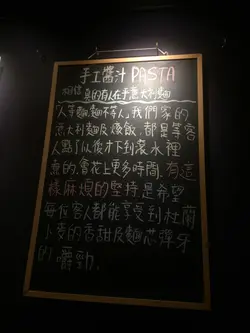 手工醬汁 PASTA
相信真的有人在乎意大利麵
「人等麵，麵不等人」我們家的
意大利麵及燉飯，都是等客
人點了以後才下到滾水裡
煮的，會花上更多時間，有這
樣麻煩的堅持是希望
每位客人都能享受到杜蘭
小麥的香甜及麵芯彈牙
的嚼勁．